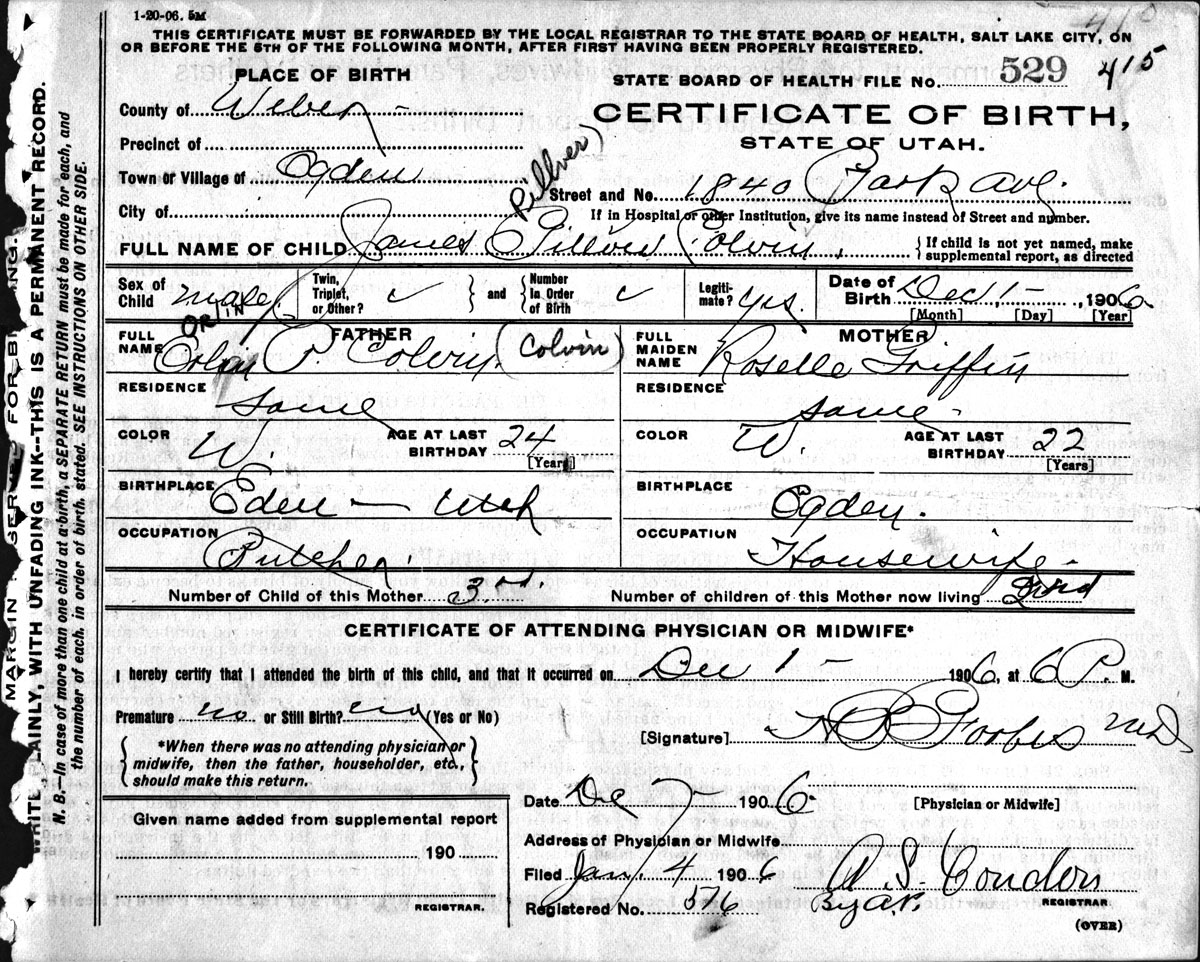 1-20-06. 5M
410
THIS CERTIFICATE MUST BE FORWARDED BY THE LOCAL REGISTRAR TO THE STATE BOARD OF HEALTH, SALT LAKE CITY, ON
OR BEFORE THE 5TH OF THE FOLLOWING MONTH, AFTER FIRST HAVING BEEN PROPERLY REGISTERED.
PLACE OF BIRTH
STATE BOARD OF HEALTH FILE No. 529 415
County of Weber
CERTIFICATE OF BIRTH,
Precinct of
STATE OF UTAH.
Town or Village of Ogden
Street and No. 1840 Park Ave.
City of
If in Hospital or other Institution, give its name instead of Street and number.
FULL NAME OF CHILD James Colvin
{ If child is not yet named, make
supplemental report, as directed
Sex of Child male
Twin, Triplet, or Other?
and
Number In Order of Birth
Legiti- mate? yes.
Date of Birth Dec 1 - , 1906
[Month] [Day] [Year]
FATHER
FULL NAME P. Colvin (Colvin)
MOTHER
FULL MAIDEN NAME Roselle Griffin
RESIDENCE Same
RESIDENCE same -
COLOR W. AGE AT LAST BIRTHDAY 24 [Years]
COLOR W. AGE AT LAST BIRTHDAY 22 [Years]
BIRTHPLACE Eden - Utah
BIRTHPLACE Ogden.
OCCUPATION Butcher.
OCCUPATION Housewife.
Number of Child of this Mother 3rd.
Number of children of this Mother now living
CERTIFICATE OF ATTENDING PHYSICIAN OR MIDWIFE*
I hereby certify that I attended the birth of this child, and that it occurred on Dec 1 - 1906, at 6 P. M.
Premature no or Still Birth? no (Yes or No)
[Signature] Forbes MD
{ *When there was no attending physician or
midwife, then the father, householder, etc.,
should make this return. }
Date De 7 - 1906
[Physician or Midwife]
Given name added from supplemental report
Address of Physician or Midwife
190
Filed Jan. 4 1906 A S Condon
REGISTRAR.
REGISTRAR
Registered No. 576 By
(OVER)
MARGIN RESERVED FOR BINDING.
WRITE PLAINLY, WITH UNFADING INK--THIS IS A PERMANENT RECORD.
N. B.—In case of more than one child at a birth, a SEPARATE RETURN must be made for each, and
the number of each, in order of birth, stated. SEE INSTRUCTIONS ON OTHER SIDE.